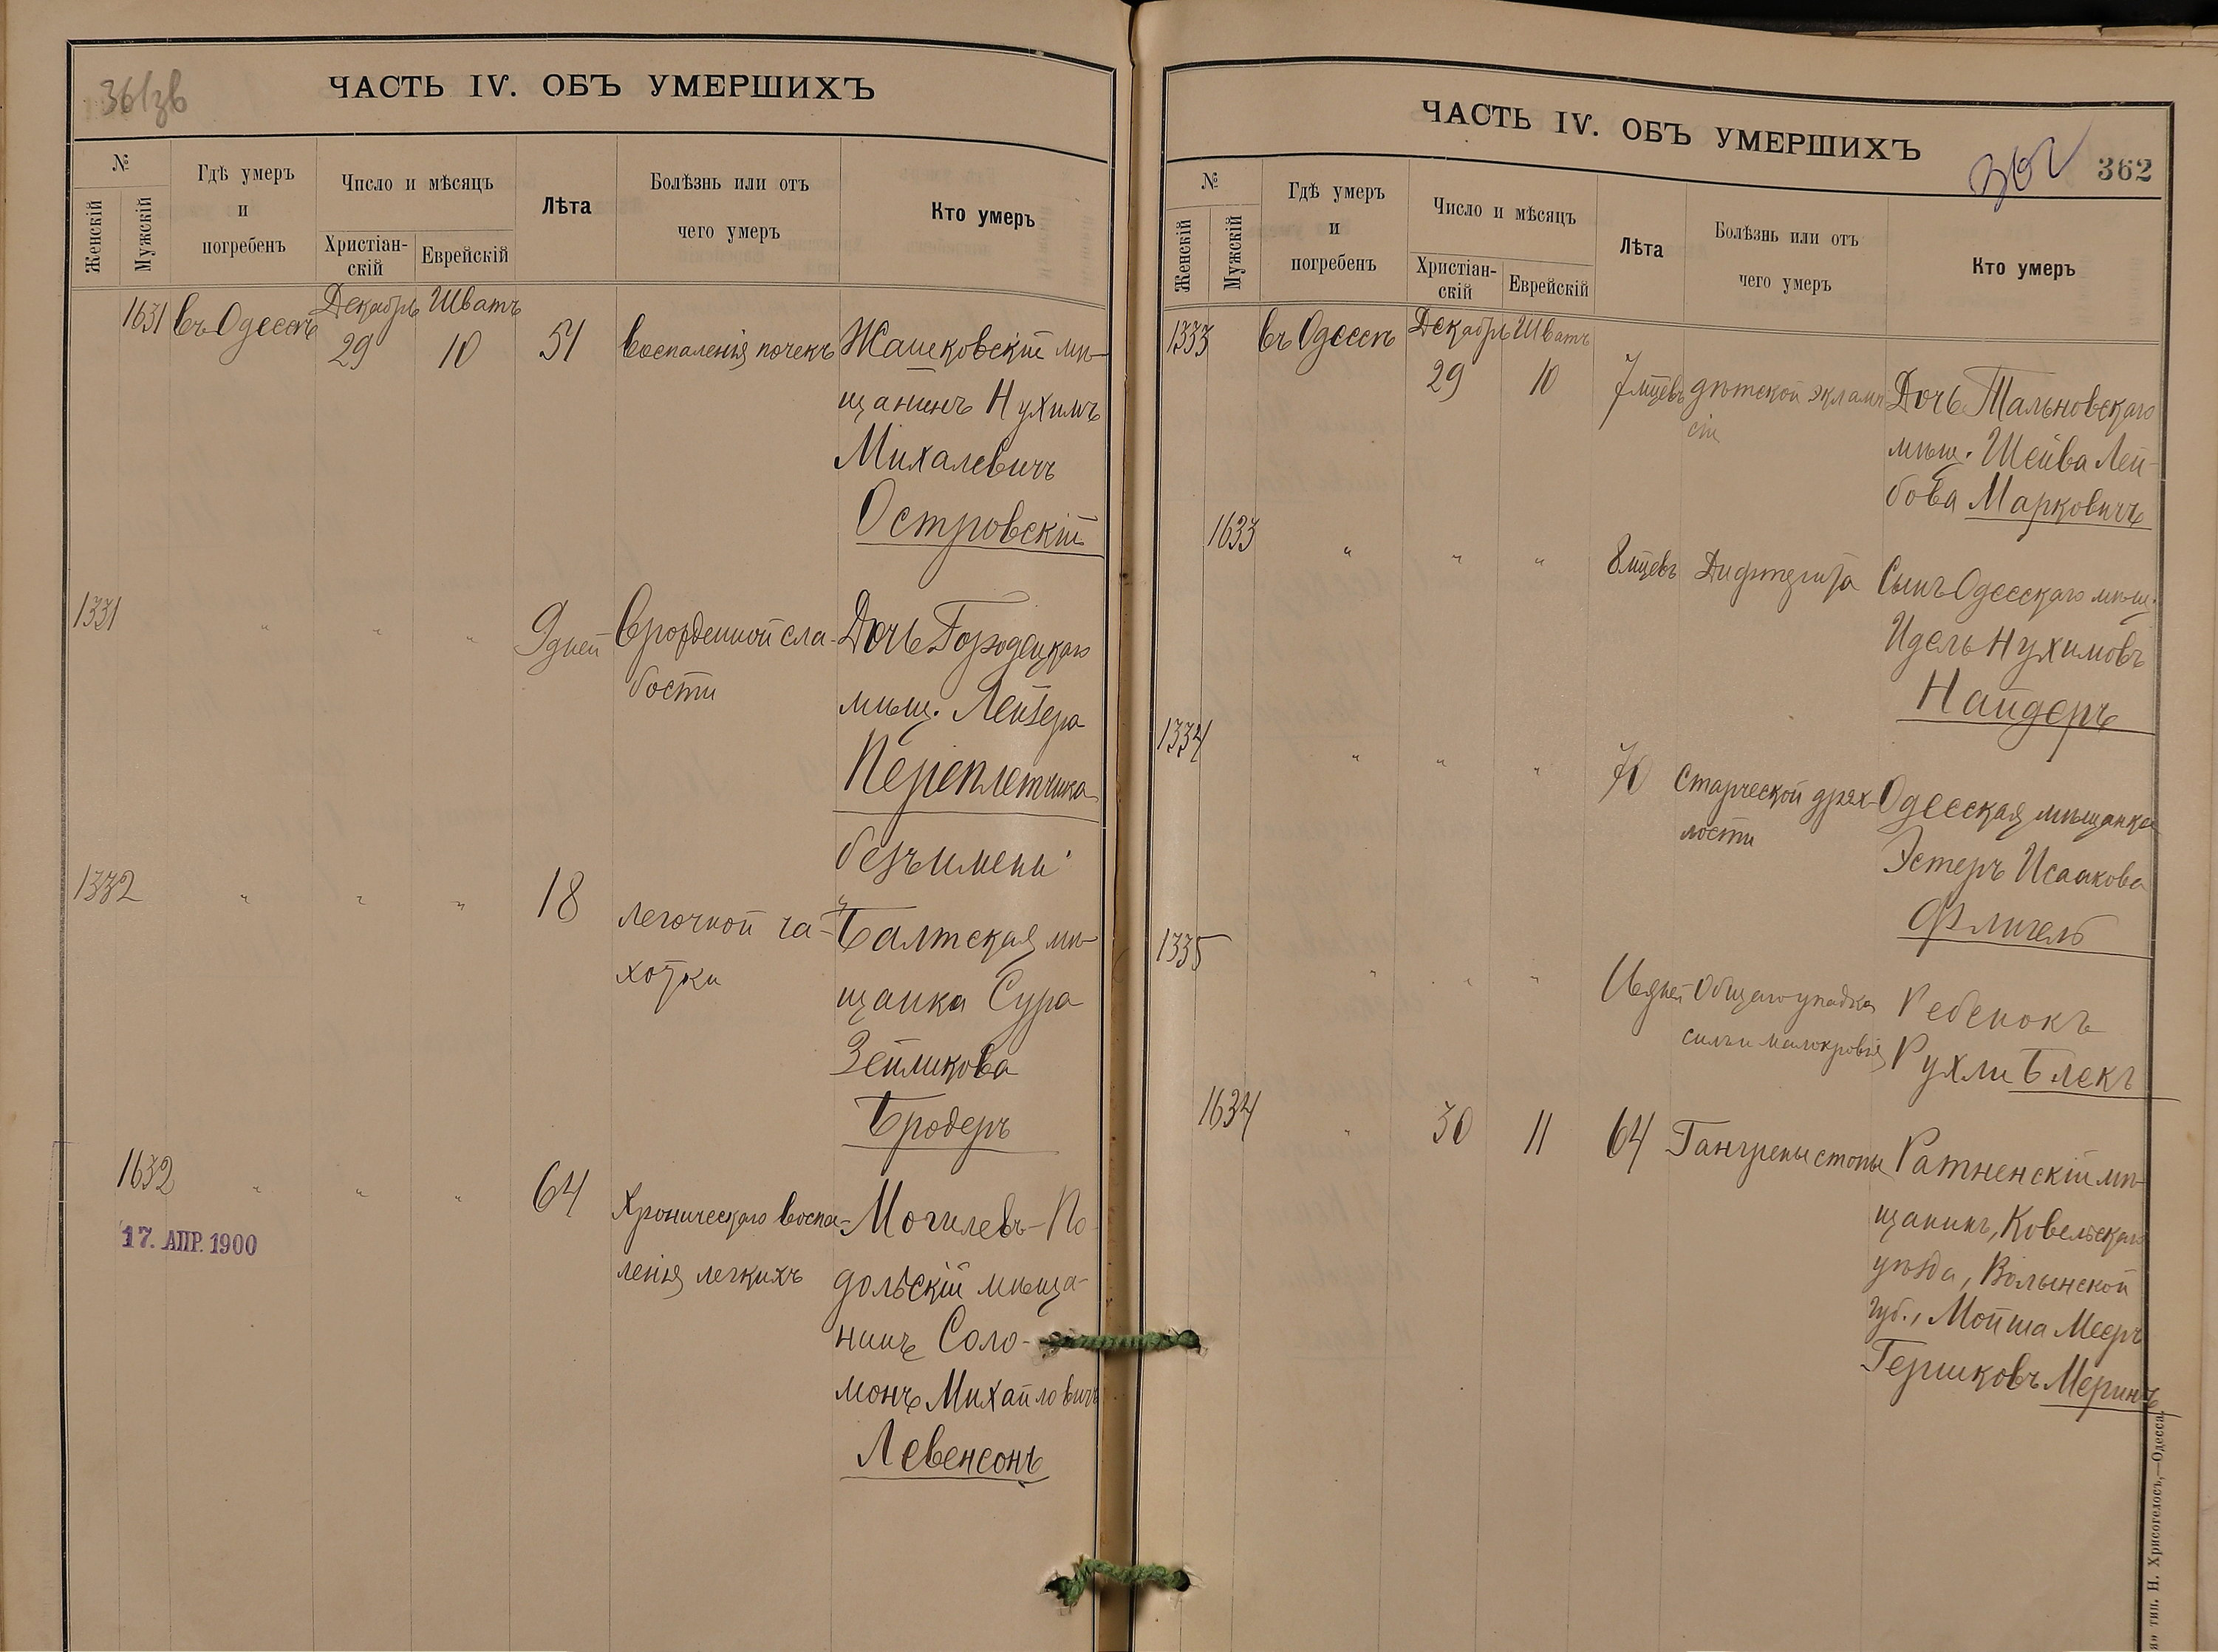 361зв
ЧАСТЬ IV. ОБЪ УМЕРШИХЪ
№
Женскій
Мужскій
Гдѣ умеръ
и
погребенъ
Число и мѣсяцъ
Христіан-
скій
Еврейскій
Лѣта
Болѣзнь или отъ
чего умеръ
Кто умеръ
1631 въ Одессѣ Декабрь 29 Шватъ 10 51 Воспаленія почекъ Жашковскій мѣ-
щанинъ Нухимъ
Михалевичъ
Островскій
1331 " " " 9 дней Врожденной сла- Дочь Городецкаго
бости мѣщ. Лейзера
Переплетчика
безъ имени
1332 " " " 18 легочной ча- Балтская мѣ-
хотки щанка Сура
Зейликова
Бродеръ
1632 " " " 64 Хроническаго воспа- Могилевъ-По-
ленія легкихъ дольскій мѣща-
нинъ Соло-
монъ Михайловичъ
Левенсонъ
17. АПР. 1900
ЧАСТЬ IV. ОБЪ УМЕРШИХЪ
362 362
№
Женскій
Мужскій
Гдѣ умеръ
и
погребенъ
Число и мѣсяцъ
Христіан-
скій
Еврейскій
Лѣта
Болѣзнь или отъ
чего умеръ
Кто умеръ
1333 въ Одессѣ Декабрь 29 Шватъ 10 7 мцевъ дѣтской эклямп- Дочь Тальновскаго
сіи мѣщ. Шейва Лей-
бова Марковичъ
1633 " " " 8 мцевъ Дифтерита Сынъ Одесскаго мѣщ.
Идель Нухимовъ
Найдеръ
1334 " " " 70 Старческой дрях- Одесская мѣщанка
лости Эстеръ Исаакова
Флигель
1335 " " " дней Общаго упадка Ребенокъ
силъ и малокровія Рухли Блекъ
1634 " 30 11 64 Гангрены стопы Ратненскій мѣ-
щанинъ, Ковельскаго
уѣзда, Волынской
губ., Мойша Мееръ
Гершковъ Меринъ
тип. Н. Хрисогелосъ,—Одесса.